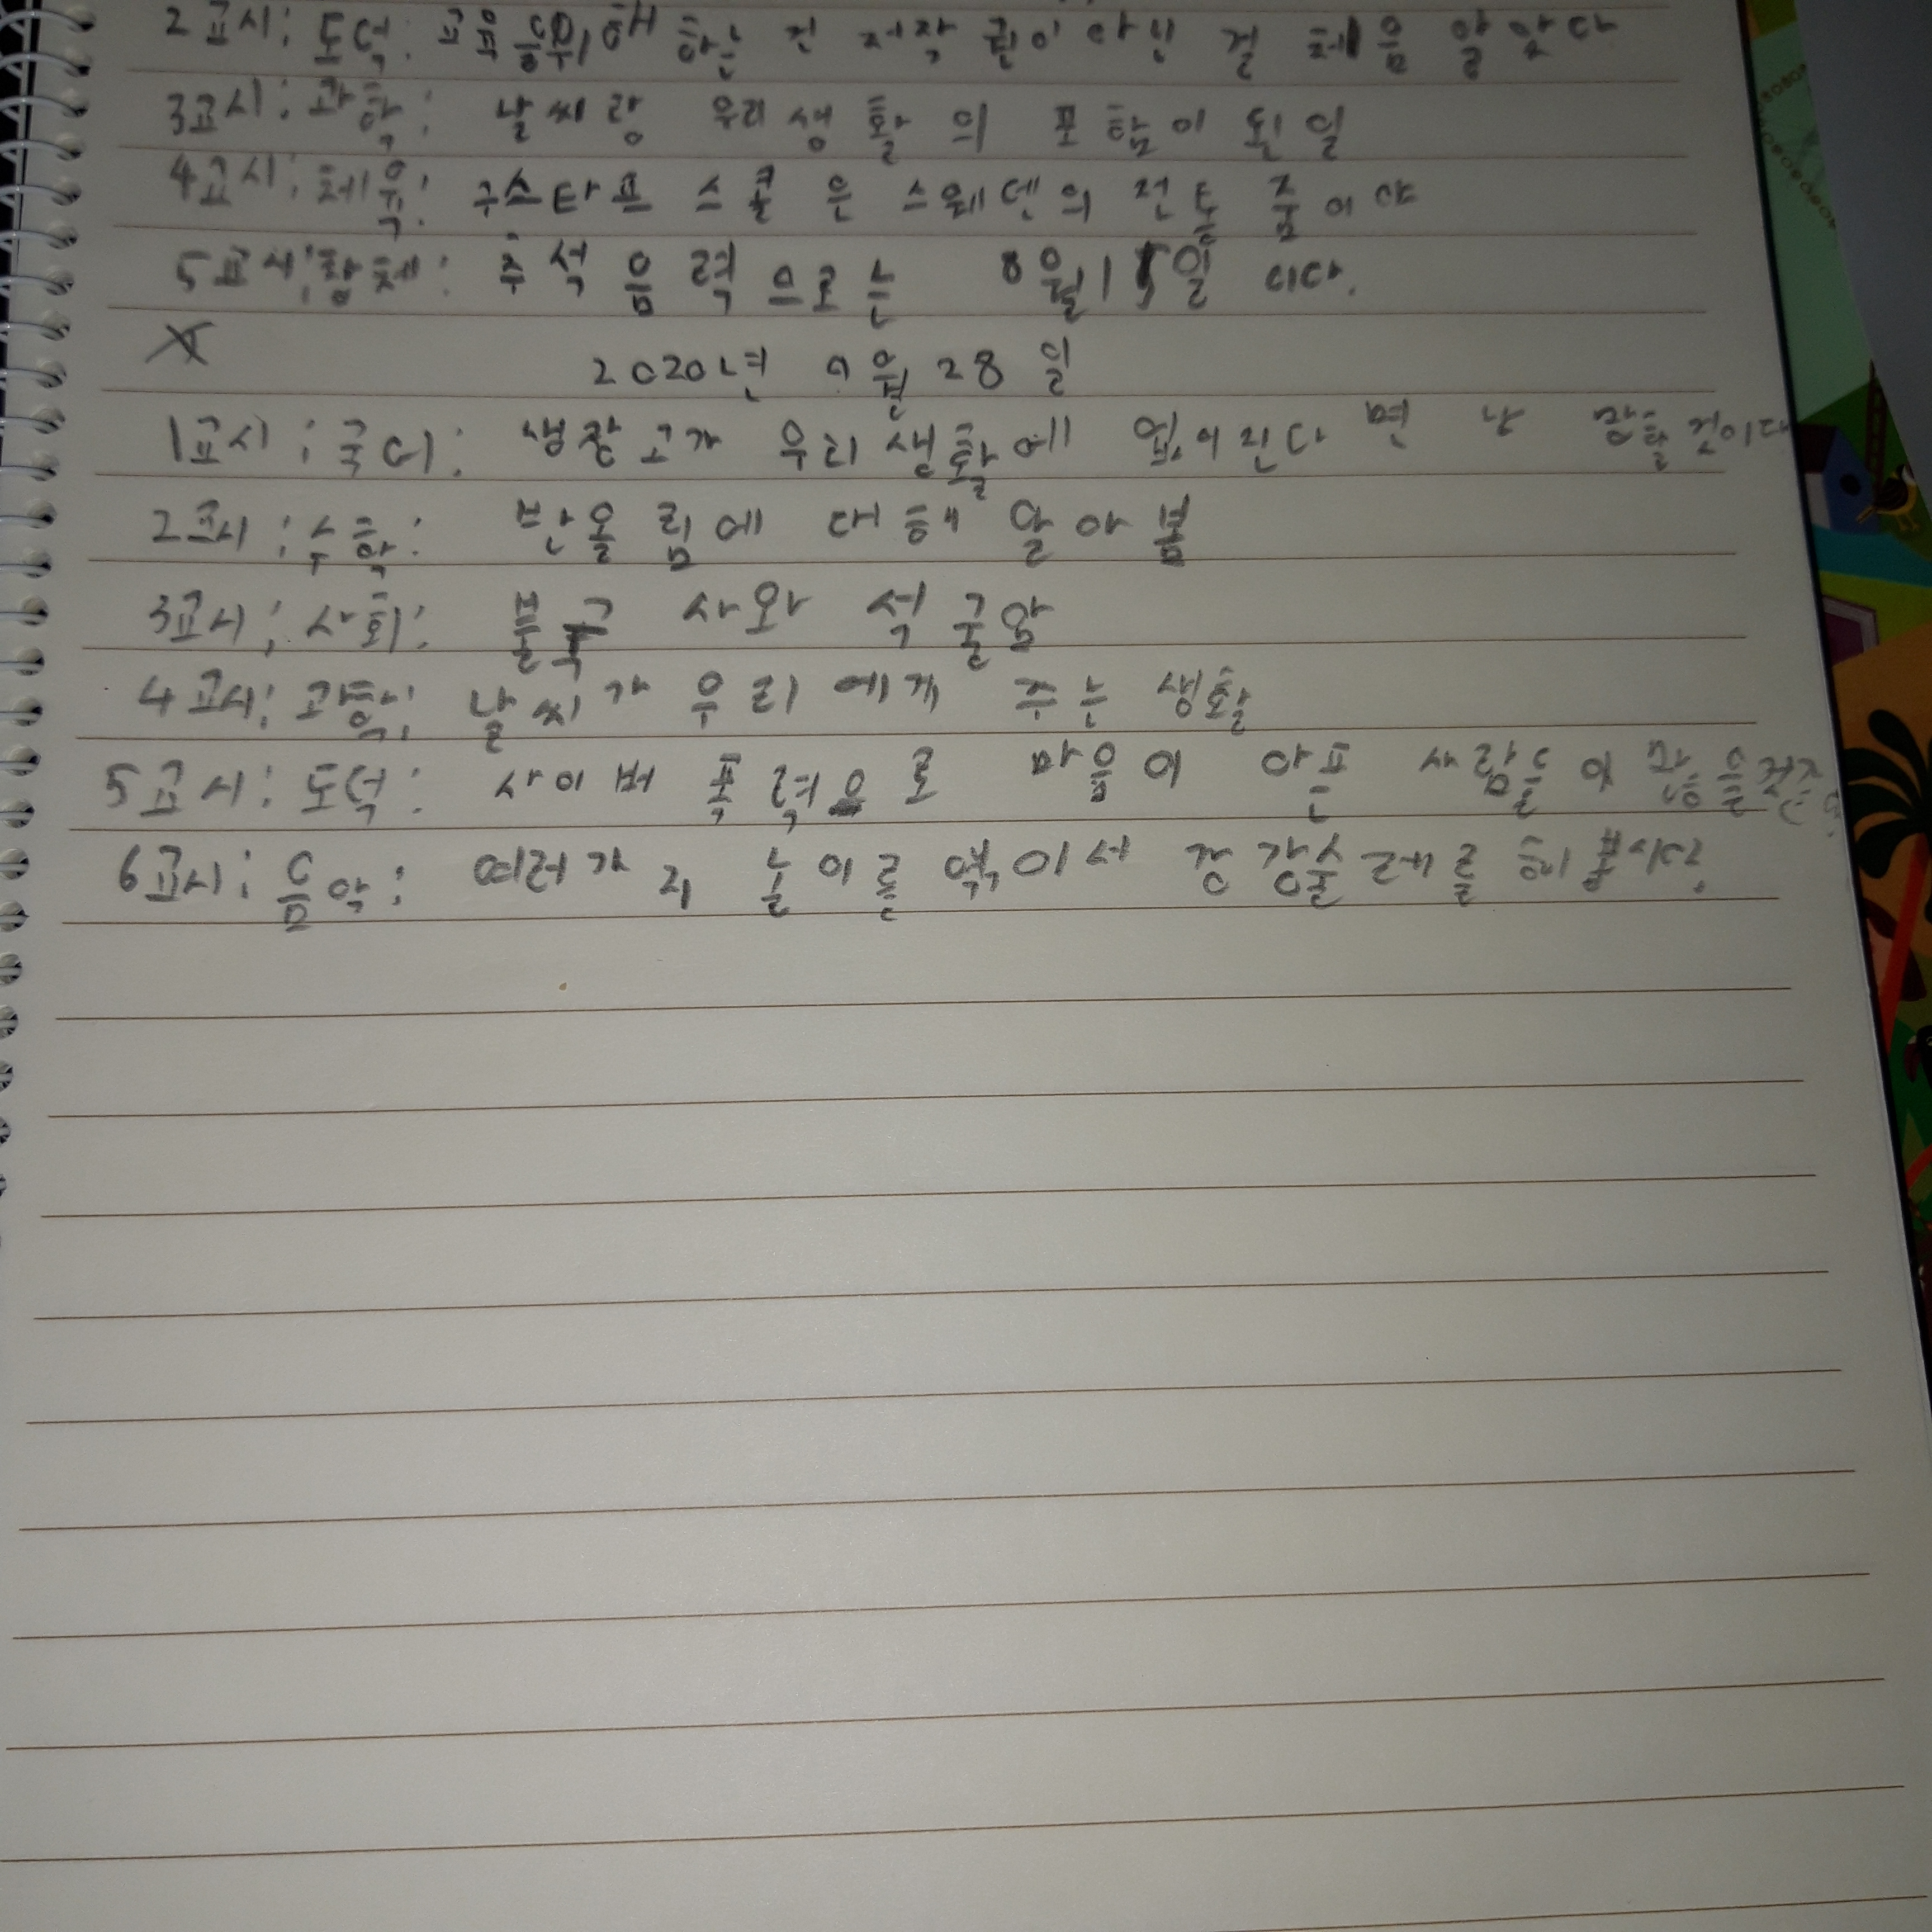 2교시: 도덕: 교육을 위해 하는 건 저작권이 아닌 걸 체음 알았다
3교시: 과학: 날씨랑 우리 생활의 포함이 된 일
4교시: 체육: 구스타프 스콜은 스웨덴의 전통 춤이야
5교시: 창체: 추석 음력으로는 8월 15일 이다.
2020년 9월 28일
1교시: 국어: 생장고가 우리 생활에 없어진다면 난 망할 것이다
2교시: 수학: 반올림에 대해 알아봄
3교시: 사회: 불국사와 석굴암
4교시: 과학: 날씨가 우리에게 주는 생활
5교시: 도덕: 사이버 폭력으로 마음이 아픈 사람들이
6교시: 음악: 여러가지 놀이를 엮어서 강강술레를 해봅시다.